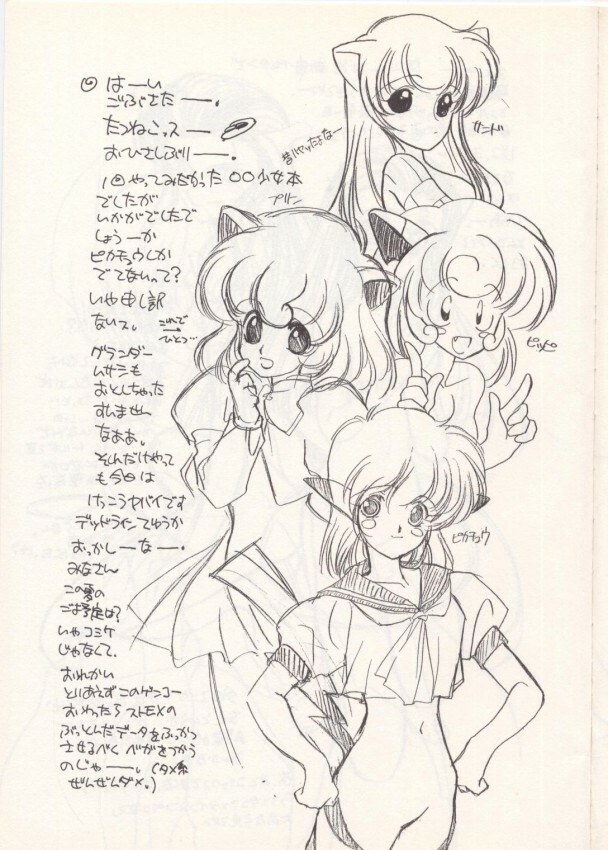 ◎ はーい
ごぶさたー.
たつねこっスー
おひさしぶりー.
1回やってみたかった〇〇少女本
でしたが
いかがでしたで
しょうーか
ピカチュウしか
でてないって?
いや申し訳
ないス。
これで
ひとつ…
グランダー
ムサシも
おとしちゃった
すいません
なぁぁ。
そんだけやって
も今回は
けっこうヤバイです
デッドラインてゆうか
おっかしーなー.
みなさん
この夏の
ご予定は?
いやコミケ
じゃなくて.
おれかい
とりあえずこのゲンコー
おわったらストEXの
ぶっとんだデータをふっかつ
させるべくベガをつかう
のじゃー。(タメ系
ぜんぜんダメ。)
サンド
プリン
ピッピ
ピカチュウ